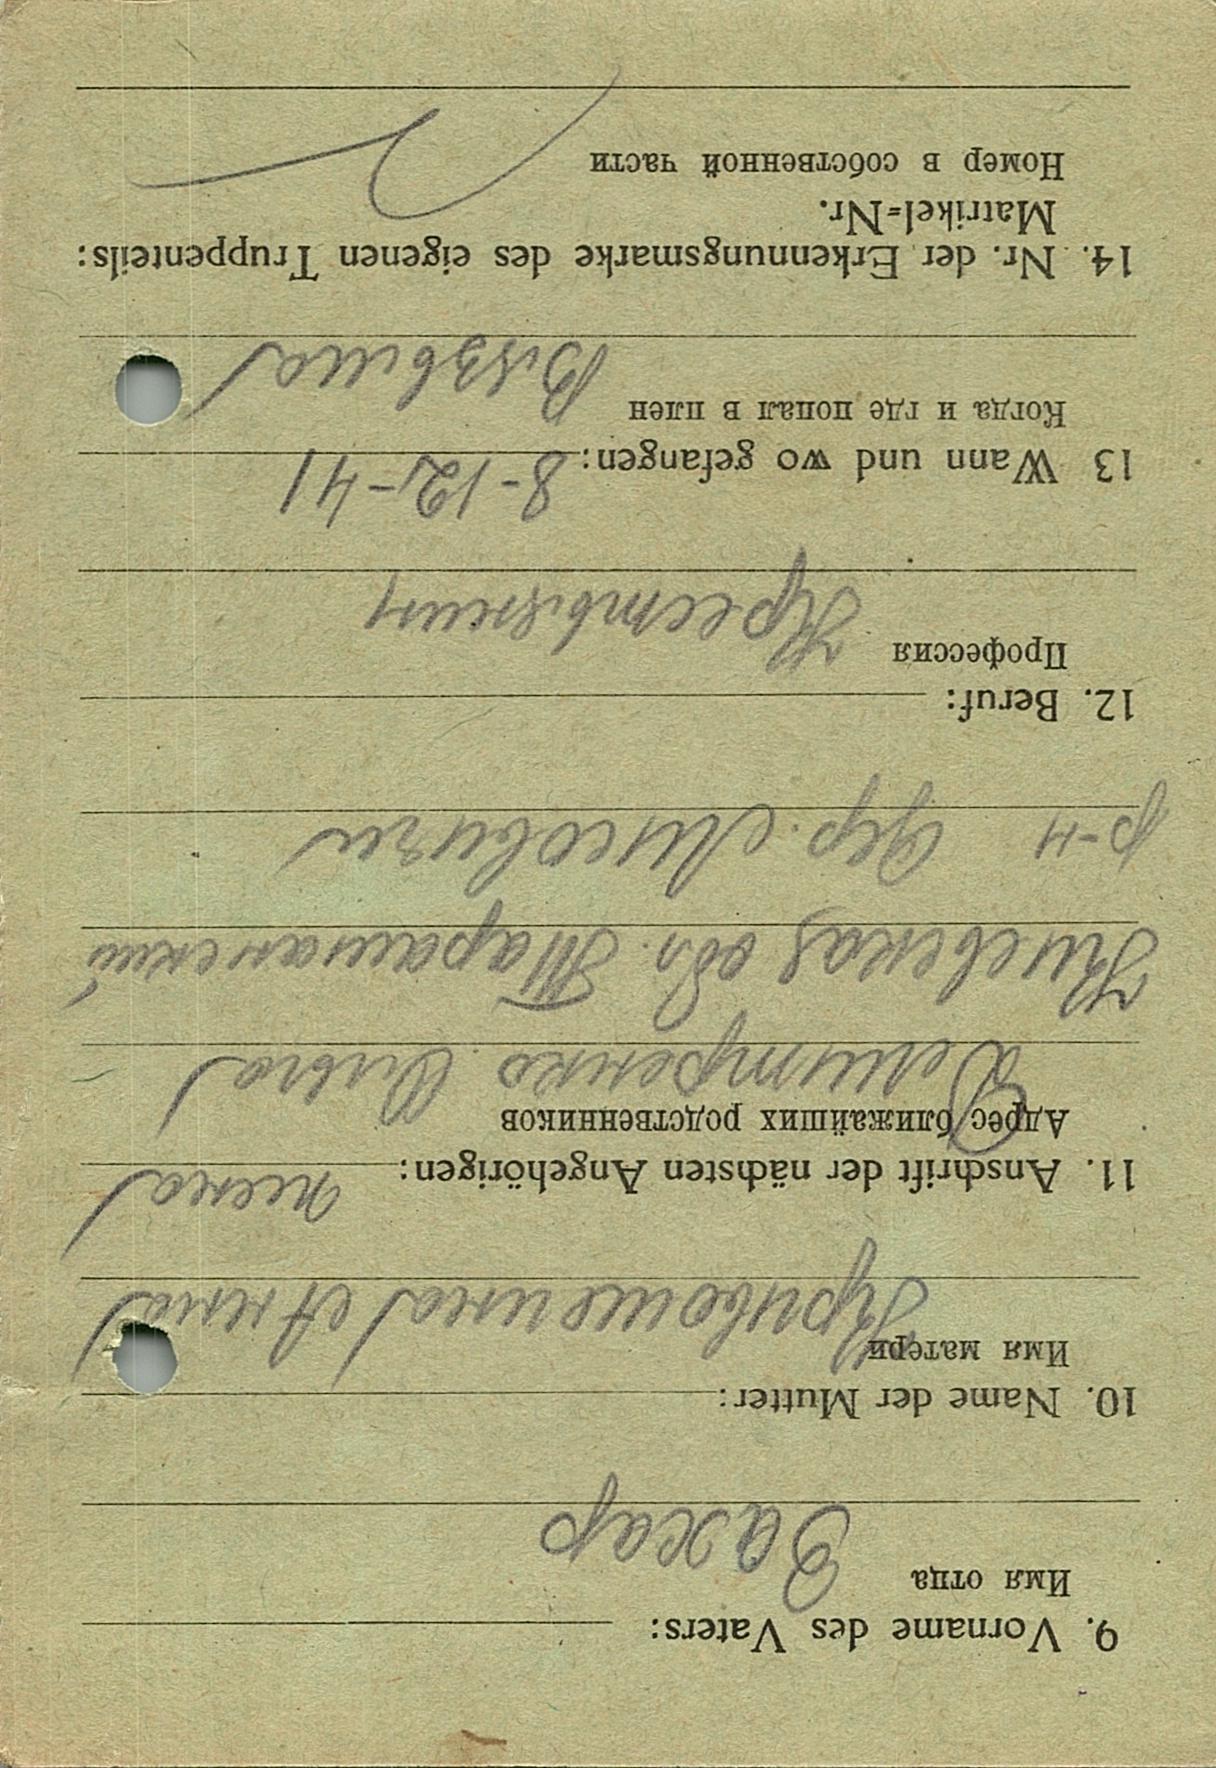 9. Vorname des Vaters:
Имя отца
Захар
10. Name der Mutter:
Имя матери
Кривошеина Анна
11. Anschrift der nächsten Angehörigen:
жена
Адрес ближайших родственников
Дмитренко Ольга
Киевская обл. Таращанский
р-н дер. Лисовичи
12. Beruf:
Профессия
Крестьянин
13 Wann und wo gefangen:
8-12-41
Когда и где попал в плен
Вязьма
14. Nr. der Erkennungsmarke des eigenen Truppenteils:
Matrikel=Nr.
Номер в собственной части